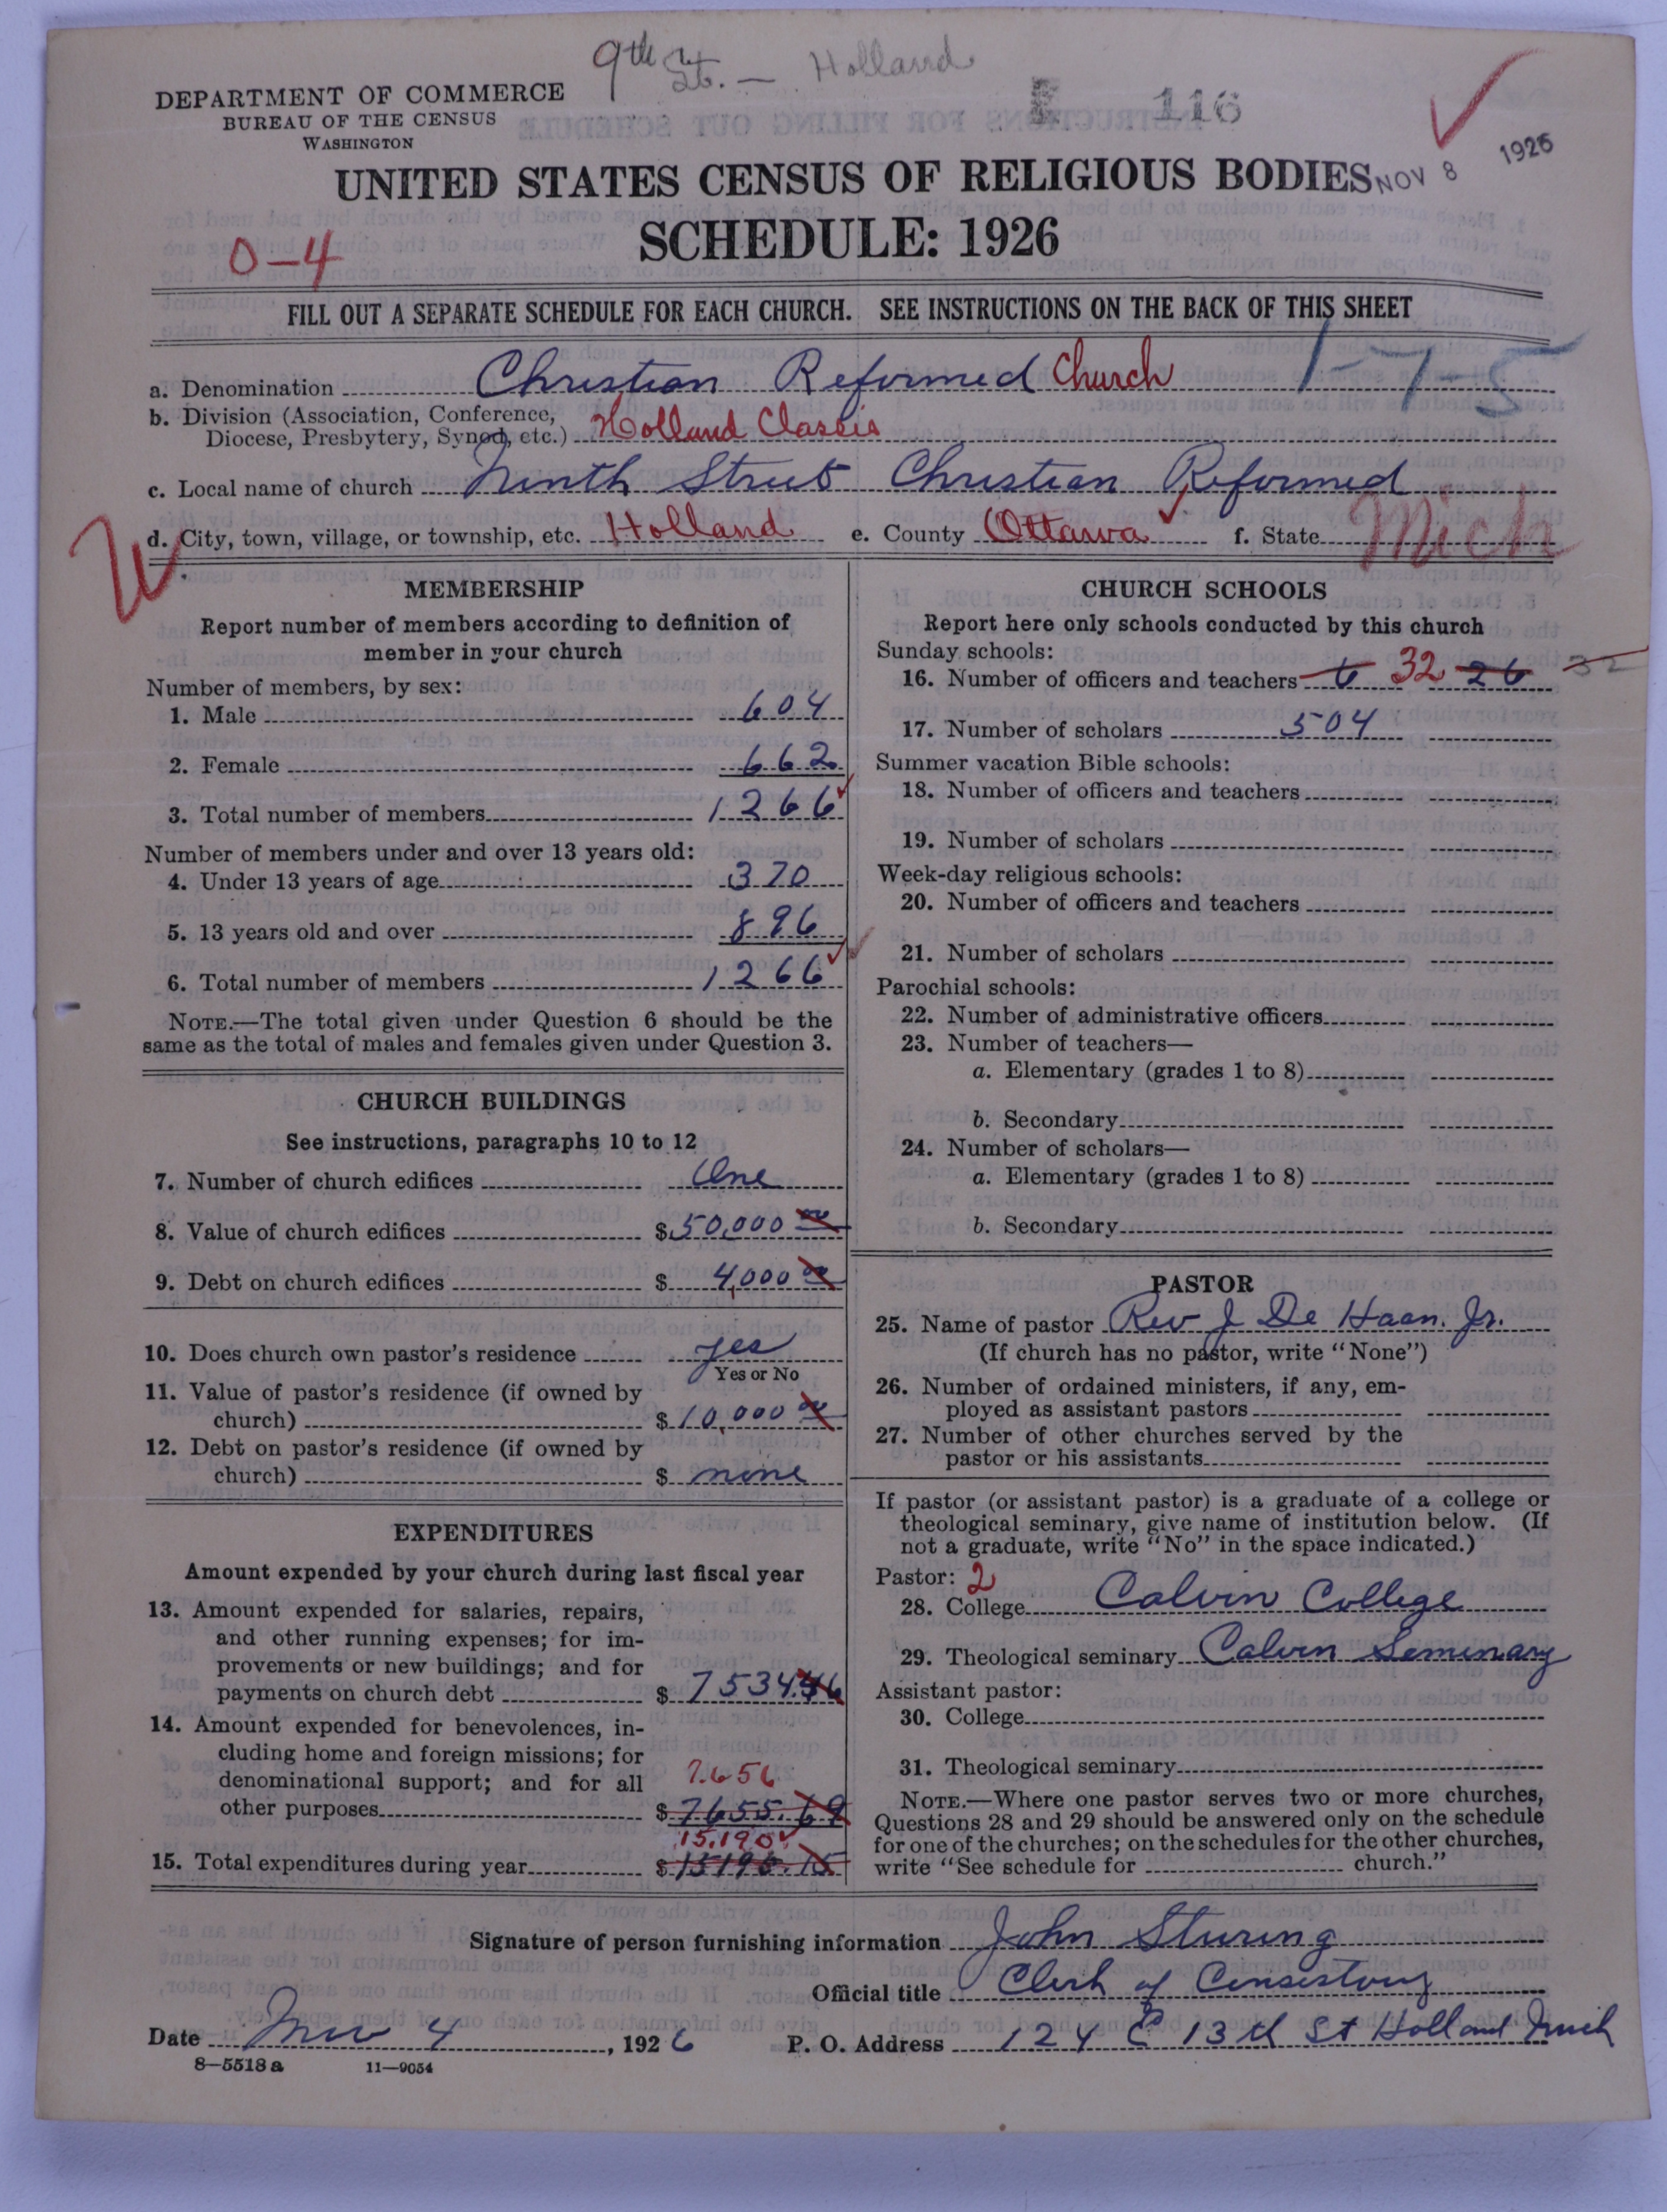 9th St. — Holland
DEPARTMENT OF COMMERCE
BUREAU OF THE CENSUS
WASHINGTON
116
NOV 8 1926
UNITED STATES CENSUS OF RELIGIOUS BODIES
SCHEDULE: 1926
0-4
FILL OUT A SEPARATE SCHEDULE FOR EACH CHURCH. SEE INSTRUCTIONS ON THE BACK OF THIS SHEET
1-7-5
a. Denomination Christian Reformed Church
b. Division (Association, Conference,
Diocese, Presbytery, Synod, etc.) Holland Classis
c. Local name of church Ninth Street Christian Reformed
d. City, town, village, or township, etc. Holland e. County Ottawa f. State Mich
MEMBERSHIP
Report number of members according to definition of
member in your church
Number of members, by sex:
1. Male 604
2. Female 662
3. Total number of members 1266
Number of members under and over 13 years old:
4. Under 13 years of age 370
5. 13 years old and over 896
6. Total number of members 1266
NOTE.—The total given under Question 6 should be the
same as the total of males and females given under Question 3.
CHURCH BUILDINGS
See instructions, paragraphs 10 to 12
7. Number of church edifices One
8. Value of church edifices $50,000 00
9. Debt on church edifices $ 4,000 00
10. Does church own pastor's residence yes
Yes or No
11. Value of pastor's residence (if owned by
church) $10,000 00
12. Debt on pastor's residence (if owned by
church) $ none
EXPENDITURES
Amount expended by your church during last fiscal year
13. Amount expended for salaries, repairs,
and other running expenses; for im-
provements or new buildings; and for
payments on church debt $ 7534.46
14. Amount expended for benevolences, in-
cluding home and foreign missions; for
denominational support; and for all
7656
other purposes $ 7655.69
15,190
15. Total expenditures during year $ 15190.15
CHURCH SCHOOLS
Report here only schools conducted by this church
Sunday schools:
16. Number of officers and teachers 6 32 26 32
17. Number of scholars 504
Summer vacation Bible schools:
18. Number of officers and teachers
19. Number of scholars
Week-day religious schools:
20. Number of officers and teachers
21. Number of scholars
Parochial schools:
22. Number of administrative officers
23. Number of teachers—
a. Elementary (grades 1 to 8)
b. Secondary
24. Number of scholars—
a. Elementary (grades 1 to 8)
b. Secondary
PASTOR
25. Name of pastor Rev J De Haan. Jr.
(If church has no pastor, write "None")
26. Number of ordained ministers, if any, em-
ployed as assistant pastors
27. Number of other churches served by the
pastor or his assistants
If pastor (or assistant pastor) is a graduate of a college or
theological seminary, give name of institution below. (If
not a graduate, write "No" in the space indicated.)
Pastor: 2
28. College Calvin College
29. Theological seminary Calvin Seminary
Assistant pastor:
30. College
31. Theological seminary
NOTE.—Where one pastor serves two or more churches,
Questions 28 and 29 should be answered only on the schedule
for one of the churches; on the schedules for the other churches,
write "See schedule for church."
Signature of person furnishing information John Sturing
Official title Clerk of Consistory
Date Nov 4, 1926 P. O. Address 124 E 13th St Holland Mich
8—5518 a 11—9054